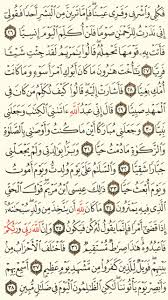 فَكُلِي وَٱشْرَبِي وَقَرِّي عَيْنًا ۖ فَإِمَّا تَرَيِنَّ مِنَ ٱلْبَشَرِ أَحَدًا فَقُولِيٓ
إِنِّي نَذَرْتُ لِلرَّحْمَٰنِ صَوْمًا فَلَنْ أُكَلِّمَ ٱلْيَوْمَ إِنسِيًّا ٢٦
فَأَتَتْ بِهِۦ قَوْمَهَا تَحْمِلُهُۥ ۖ قَالُوا۟ يَٰمَرْيَمُ لَقَدْ جِئْتِ شَيْـًٔا
فَرِيًّا ٢٧ يَٰٓأُخْتَ هَٰرُونَ مَا كَانَ أَبُوكِ ٱمْرَأَ سَوْءٍ وَمَا كَانَتْ
أُمُّكِ بَغِيًّا ٢٨ فَأَشَارَتْ إِلَيْهِ ۖ قَالُوا۟ كَيْفَ نُكَلِّمُ مَن كَانَ فِي
ٱلْمَهْدِ صَبِيًّا ٢٩ قَالَ إِنِّي عَبْدُ ٱللَّهِ ءَاتَىٰنِيَ ٱلْكِتَٰبَ وَجَعَلَنِي
نَبِيًّا ٣٠ وَجَعَلَنِي مُبَارَكًا أَيْنَ مَا كُنتُ وَأَوْصَٰنِي بِٱلصَّلَوٰةِ
وَٱلزَّكَوٰةِ مَا دُمْتُ حَيًّا ٣١ وَبَرًّۢا بِوَٰلِدَتِي وَلَمْ يَجْعَلْنِي
جَبَّارًا شَقِيًّا ٣٢ وَٱلسَّلَٰمُ عَلَيَّ يَوْمَ وُلِدتُّ وَيَوْمَ أَمُوتُ
وَيَوْمَ أُبْعَثُ حَيًّا ٣٣ ذَٰلِكَ عِيسَى ٱبْنُ مَرْيَمَ ۚ قَوْلَ ٱلْحَقِّ
ٱلَّذِي فِيهِ يَمْتَرُونَ ٣٤ مَا كَانَ لِلَّهِ أَن يَتَّخِذَ مِن وَلَدٍ ۖ سُبْحَٰنَهُۥٓ ۚ
إِذَا قَضَىٰٓ أَمْرًا فَإِنَّمَا يَقُولُ لَهُۥ كُن فَيَكُونُ ٣٥ وَإِنَّ ٱللَّهَ رَبِّي وَرَبُّكُمْ
فَٱعْبُدُوهُ ۚ هَٰذَا صِرَٰطٌ مُّسْتَقِيمٌ ٣٦ فَٱخْتَلَفَ ٱلْأَحْزَابُ مِنۢ
بَيْنِهِمْ ۖ فَوَيْلٌ لِّلَّذِينَ كَفَرُوا۟ مِن مَّشْهَدِ يَوْمٍ عَظِيمٍ ٣٧ أَسْمِعْ بِهِمْ
وَأَبْصِرْ يَوْمَ يَأْتُونَنَا ۖ لَٰكِنِ ٱلظَّٰلِمُونَ ٱلْيَوْمَ فِي ضَلَٰلٍ مُّبِينٍ ٣٨